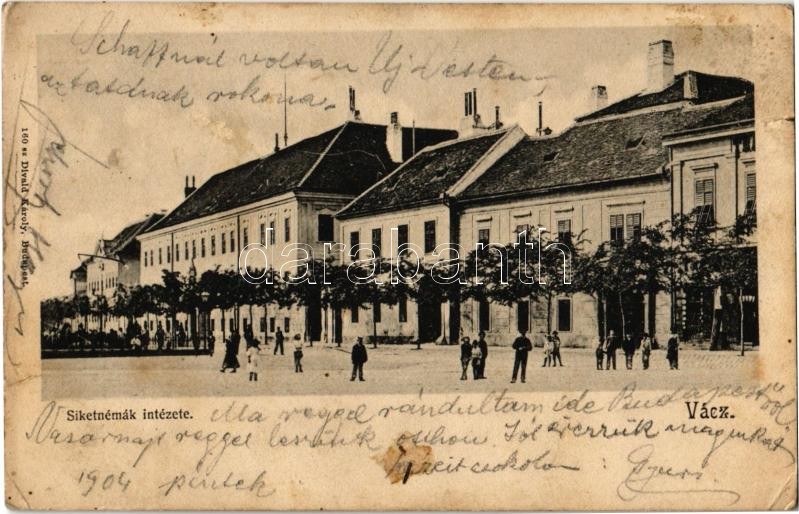 Schaffnál voltam Uj Pesten
rokona
160 sz Divald Károly, Budapest.
darabanth
Siketnémák intézete.
Vácz.
Ma reggel rándultam ide Budapestről
Vasárnap reggel leszünk otthon. Jól érezzük magunkat
csókol
1904 péntek
Gyuri